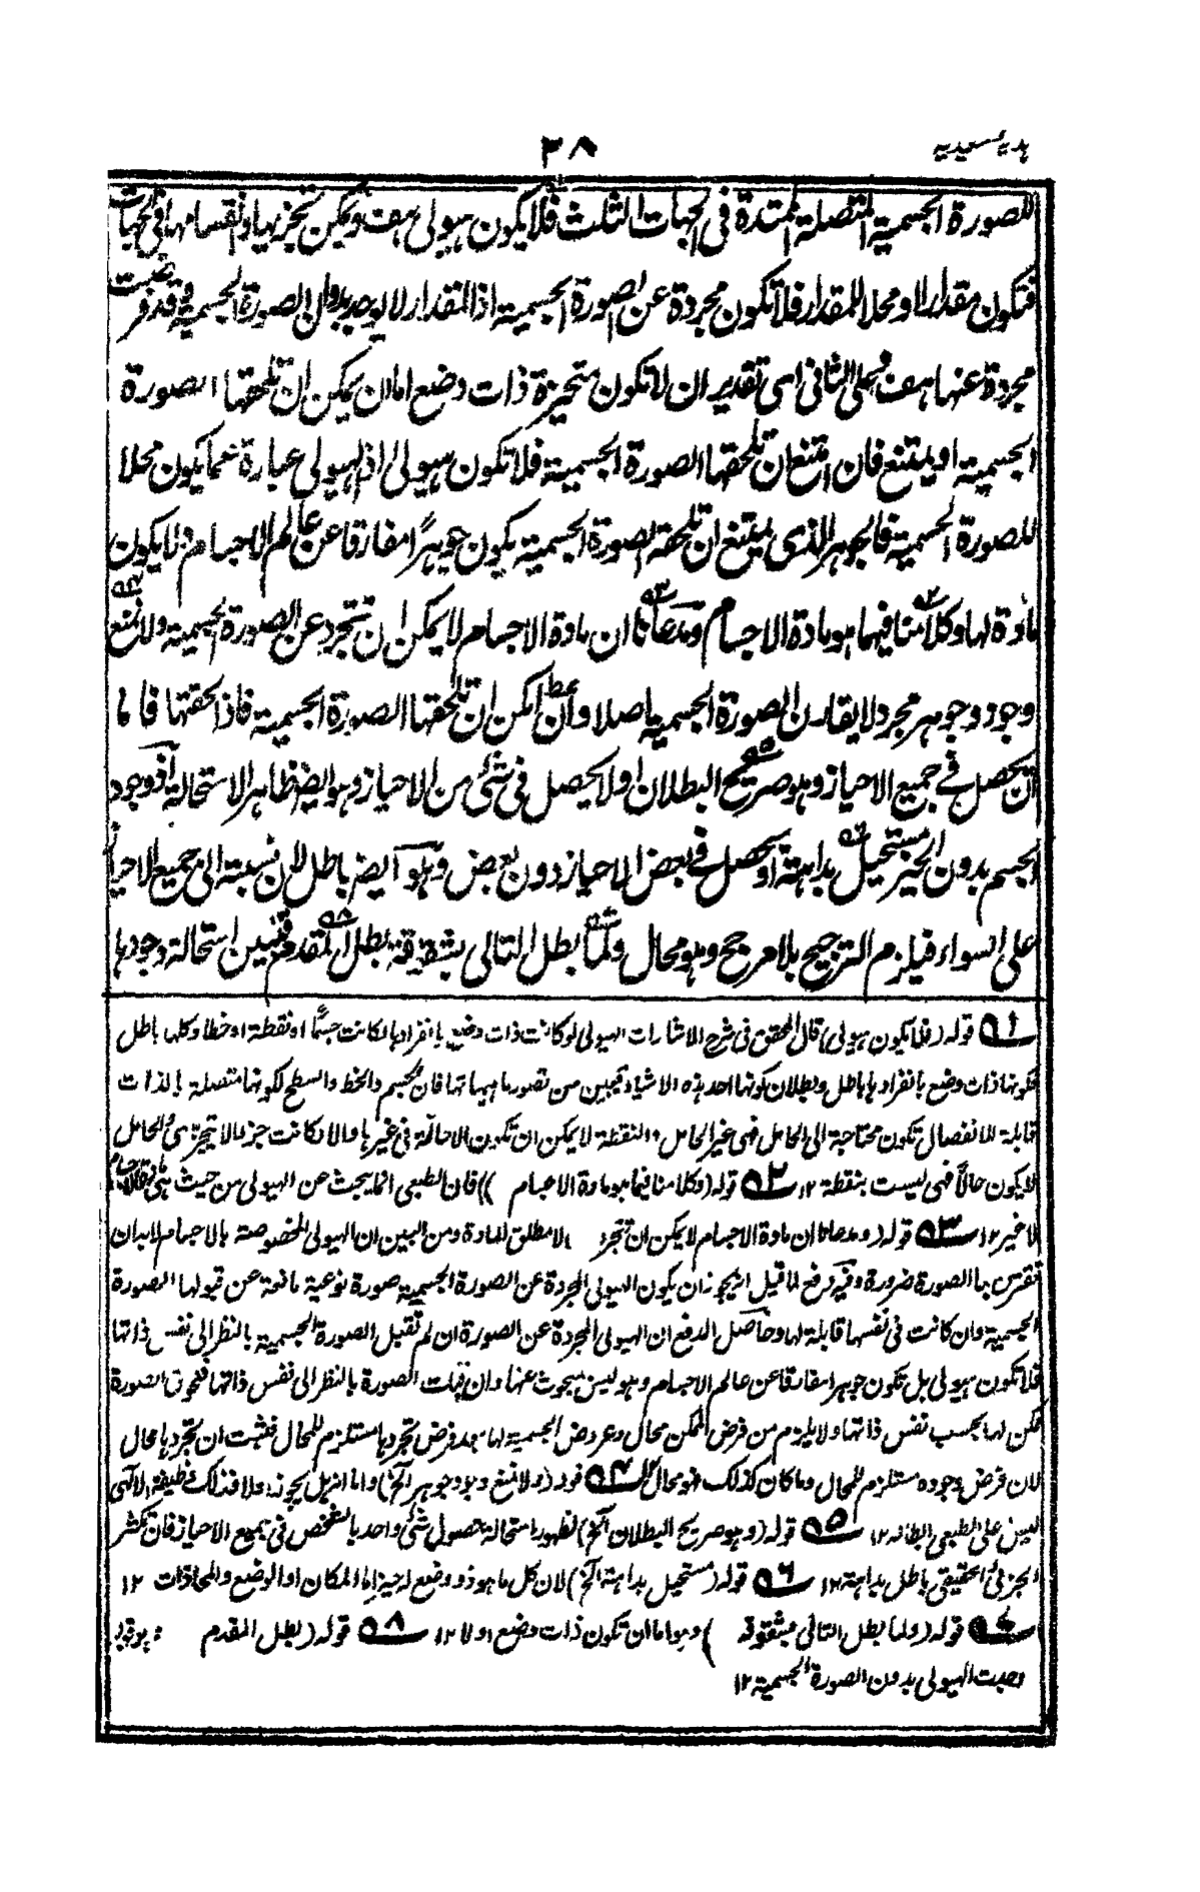 هدية سعيدية
٣٨
للصورة الجسمية المتصلة الممتدة فى الجهات الثلث فلا يكون هيولى هف ويمكن تجزيها وانقسامها فى الجهات
فتكون مقدارا او محلا للمقدار فلا تكون مجردة عن الصورة الجسمية اذ المقدار لا يوجد بدون الصورة الجسمية وقد فرضت
مجردة عنها هف وعلى الثانى اى تقدير ان لا تكون متحيزة ذات وضع اما ان يمكن ان تلحقها الصورة
الجسمية او يمتنع فان امتنع ان تلحقها الصورة الجسمية فلا تكون هيولى اذ الهيولى عبارة عما يكون محلا
للصورة الجسمية فالجوهر الذى يمتنع ان تلحقه الصورة الجسمية يكون جوهرًا مفارقا عن عالم الاجسام ولا يكون
مادة لها وكلامنا فيما هو مادة الاجسام ومدعانا ان مادة الاجسام لا يمكن ان تتجرد عن الصورة الجسمية ولا نمنع
وجود جوهر مجرد لا يقارن الصورة الجسمية اصلا وان امكن ان تلحقها الصورة الجسمية فاذا لحقتها فاما
ان يحصل فى جميع الاحياز وهو صريح البطلان او لا يحصل فى شئ من الاحياز وهو ايضا ظاهر الاستحالة اذ وجود
الجسم بدون الحيز مستحيل بداهة او يحصل فى بعض الاحياز دون بعض وهو ايضا باطل لان نسبته الى جميع الاحياز
على السواء فيلزم الترجيح بلا مرجح وهو محال ولما بطل التالى بشقيقه بطل المقدم فتبين استحالة وجودها
٥١ قوله (فلا يكون هيولى) قال المحقق فى شرح الاشارات الهيولى لو كانت ذات وضع بانفرادها لكانت جسمًا او نقطة او خطا وكلها باطل
فكونها ذات وضع بانفرادها باطل وبطلان كونها احد هذه الاشياء يتبين من تصور ماهياتها فان الجسم والخط والسطح لكونها متصلة بالذات
قابلة للانفصال تكون محتاجة الى الحامل فهى غير الحامل والنقطة لا يمكن ان تكون الا حالّة فى غيرها والا لكانت جزءا لا يتجزئ والحامل
لا يكون حالّا فهى ليست بنقطة ١٢ ٥٢ قوله (وكلامنا فيما هو مادة الاجسام) فان الطبعى انما يبحث عن الهيولى من حيث هى مادة الاجسام
لا غير ١٢ ٥٣ قوله (ومدعانا ان مادة الاجسام لا يمكن ان تتجرد) لا مطلق المادة ومن البين ان الهيولى المخصوصة بالاجسام لابد ان
تقترن بها الصورة ضرورة وفيه دفع لما قيل انه يجوز ان يكون الهيولى المجردة عن الصورة الجسمية صورة نوعية مانعة عن قبولها الصورة
الجسمية وان كانت فى نفسها قابلة لها وحاصل الدفع ان الهيولى المجردة عن الصورة ان لم تقبل الصورة الجسمية بالنظر الى نفس ذاتها
فلا تكون هيولى بل تكون جوهرا مفارقا عن عالم الاجسام وهو ليس بمبحوث عنها وان قبلت الصورة بالنظر الى نفس ذاتها فلحوق الصورة
ممكن لها بحسب نفس ذاتها ولا يلزم من فرض الممكن محال وعروض الجسمية لها بعد فرض تجردها مستلزم للمحال فثبت ان تجردها محال
لان فرض وجوده مستلزم للمحال وما كان كذلك فهو محال ١٢ ٥٤ قوله (ولا نمنع وجود جوهر الخ) واما انه هل يجوز او لا فذلك وظيفة الالهى
ليس على الطبعى ابطاله ١٢ ٥٥ قوله (وهو صريح البطلان الخ) لظهور استحالة حصول شئ واحد بالشخص فى جميع الاحياز فان تكثر
الجزئى الحقيقى باطل بداهة ١٢ ٥٦ قوله (مستحيل بداهة الخ) لان كل ما هو ذو وضع له حيز اما المكان او الوضع والمحاذات ١٢
٥٧ قوله (ولما بطل التالى بشقوقه) وهو اما ان تكون ذات وضع او لا ١٢ ٥٨ قوله (بطل المقدم) هو
وجدت الهيولى بدون الصورة الجسمية ١٢